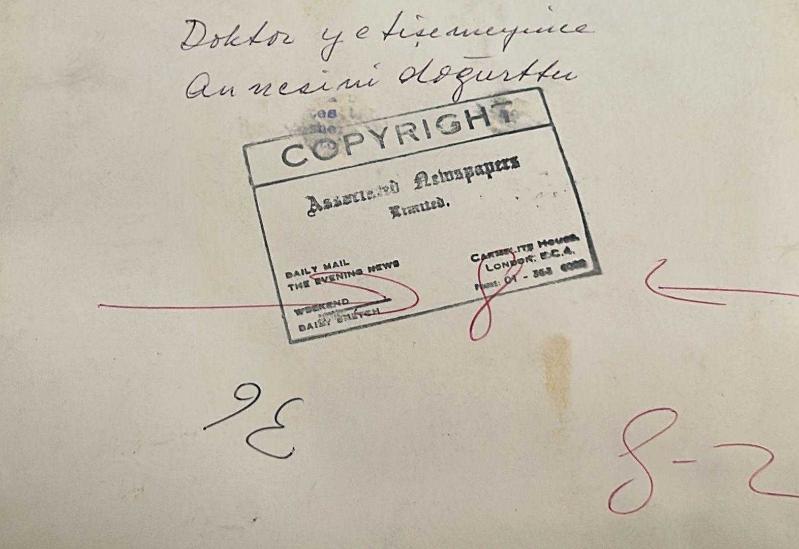 Doktor yetişemeyince
Annesini doğurttu
COPYRIGHT
Associated Newspapers
Limited.
DAILY MAIL
THE EVENING NEWS
WEEKEND
DAILY SKETCH
CARMELITE HOUSE,
LONDON, E.C.4.
PHONE: 01 - 353 6000
8
8-2